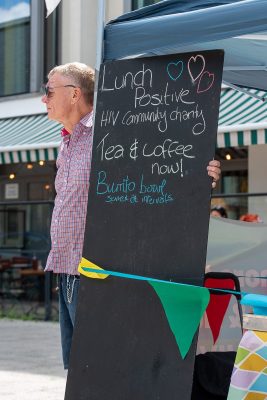 Lunch
Positive
HIV Community charity
Tea & coffee
now!
Burrito bowl
served at intervals